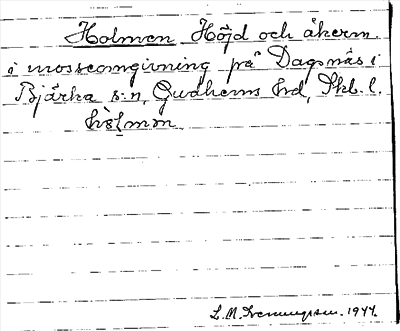 Holmen Höjd och åkerm.
i mosseomgivning på Dagsnäs i
Bjärka s:n, Gudhems hd, Skb. l.
hòlmən
L. M. 1944.